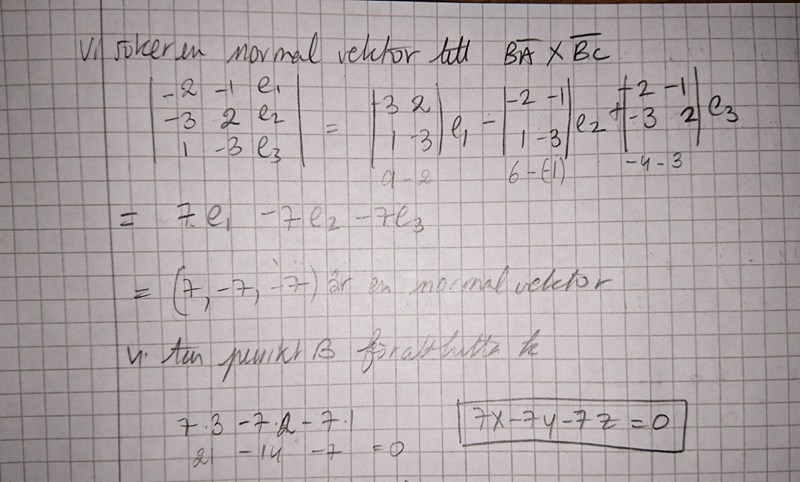 Vi söker en normal vektor till BA × BC
| -2 -1 e₁ | | -3 2 | | -2 -1 | | -2 -1 |
| -3 2 e₂ | = | 1 -3 | e₁ - | 1 -3 | e₂ + | -3 2 | e₃
| 1 -3 e₃ |
9 - 2 6 - (-1) -4 - 3
= 7e₁ - 7e₂ - 7e₃
= (7, -7, -7) är en normal vektor
Vi tar punkt B för att hitta k
7·3 - 7·2 - 7·1 7x - 7y - 7z = 0
21 - 14 - 7 = 0